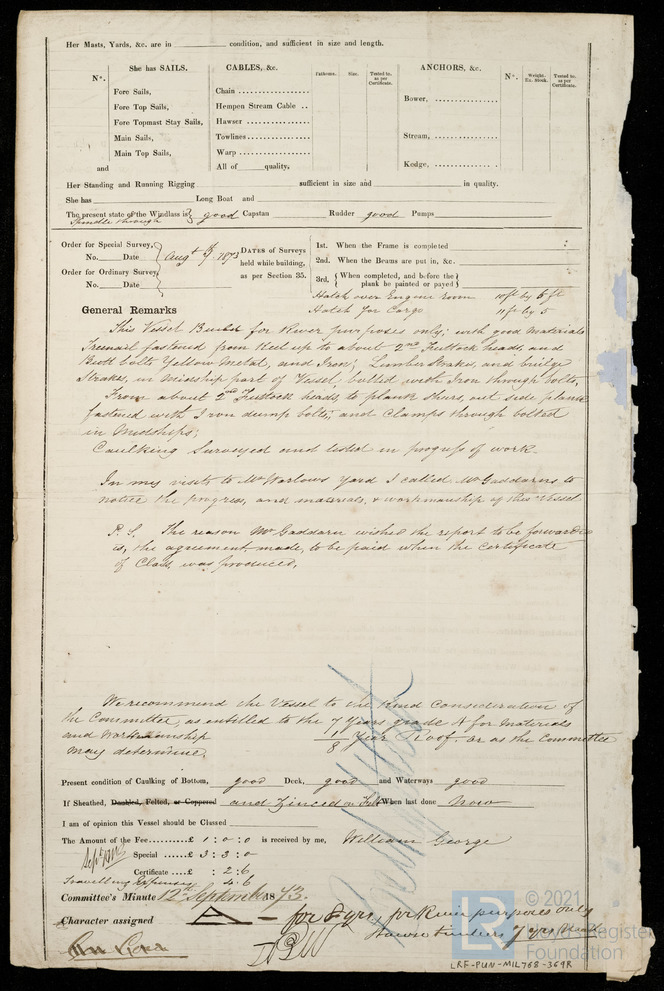 Her Masts, Yards, &c. are in condition, and sufficient in size and length.
She has SAILS. CABLES, &c. Fathoms. Size. Tested to. as per Certificate. ANCHORS, &c. Nº. Weight. Ex. Stock. Tested to. as per Certificate.
Nº.
Fore Sails, Chain
Fore Top Sails, Hempen Stream Cable Bower,
Fore Topmast Stay Sails, Hawser
Main Sails, Towlines Stream,
Main Top Sails, Warp
and All of quality, Kedge,
Her Standing and Running Rigging sufficient in size and in quality.
She has Long Boat and
The present state of the Windlass is good Capstan Rudder good Pumps
Spindle through
Order for Special Survey, No. Date Augt 1873
Order for Ordinary Survey, No. Date
DATES of Surveys held while building, as per Section 35.
1st. When the Frame is completed
2nd. When the Beams are put in, &c.
3rd. When completed, and before the plank be painted or payed
Hatch over Engine room 10ft by 6ft
Hatch for Cargo 11ft by 5
General Remarks
This Vessel Built for River purposes only; with good Materials
Treenail fastened from Keel up to about 2nd Futtock heads, and
Butt bolts Yellow Metal, and Iron, Limber Strakes, and builge
Strakes, in Midship part of Vessel, bolted with Iron through bolts,
From about 2nd Futtock heads, to plank Shears, out side plank
fastened with Iron dump bolts, and Clamps through bolted
in Midships;
Caulking Surveyed and tested in progress of work.
In my visits to Mr Warlows Yard I called Mr Gaddarns to
notice the progress, and materials, & workmanship of this Vessel
P.S. The reason Mr Gaddarn wished the report to be forwarded
is, the agreement made, to be paid when the Certificate
of Class, was produced,
We recommend the Vessel to the Kind Consideration of
the Committee, as entitled to the 7 Years grade A for Materials
and Workmanship 1 Year Roof. or as the Committee
may determine. 8
Present condition of Caulking of Bottom, good Deck, good and Waterways good
If Sheathed, Doubled, Felted, or Coppered and Zinced on Felt When last done Now
I am of opinion this Vessel should be Classed
The Amount of the Fee £ 1 : 0 : 0 is received by me, William George
Special £ 3 : 3 : 0
Certificate £ : 2 : 6
Travelling Expenses 4 : 6
Committee's Minute 12th September 1873.
Character assigned A — for 8 yrs, for River purposes only
7 yrs
© 2021
Lloyd's Register
Foundation
LR
LRF-PUN-MIL768-369R